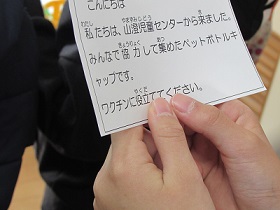 こんにちは
私たちは、山澄児童センターから来ました。
みんなで協力して集めたペットボトルキ
ャップです。
ワクチンに役立ててください。